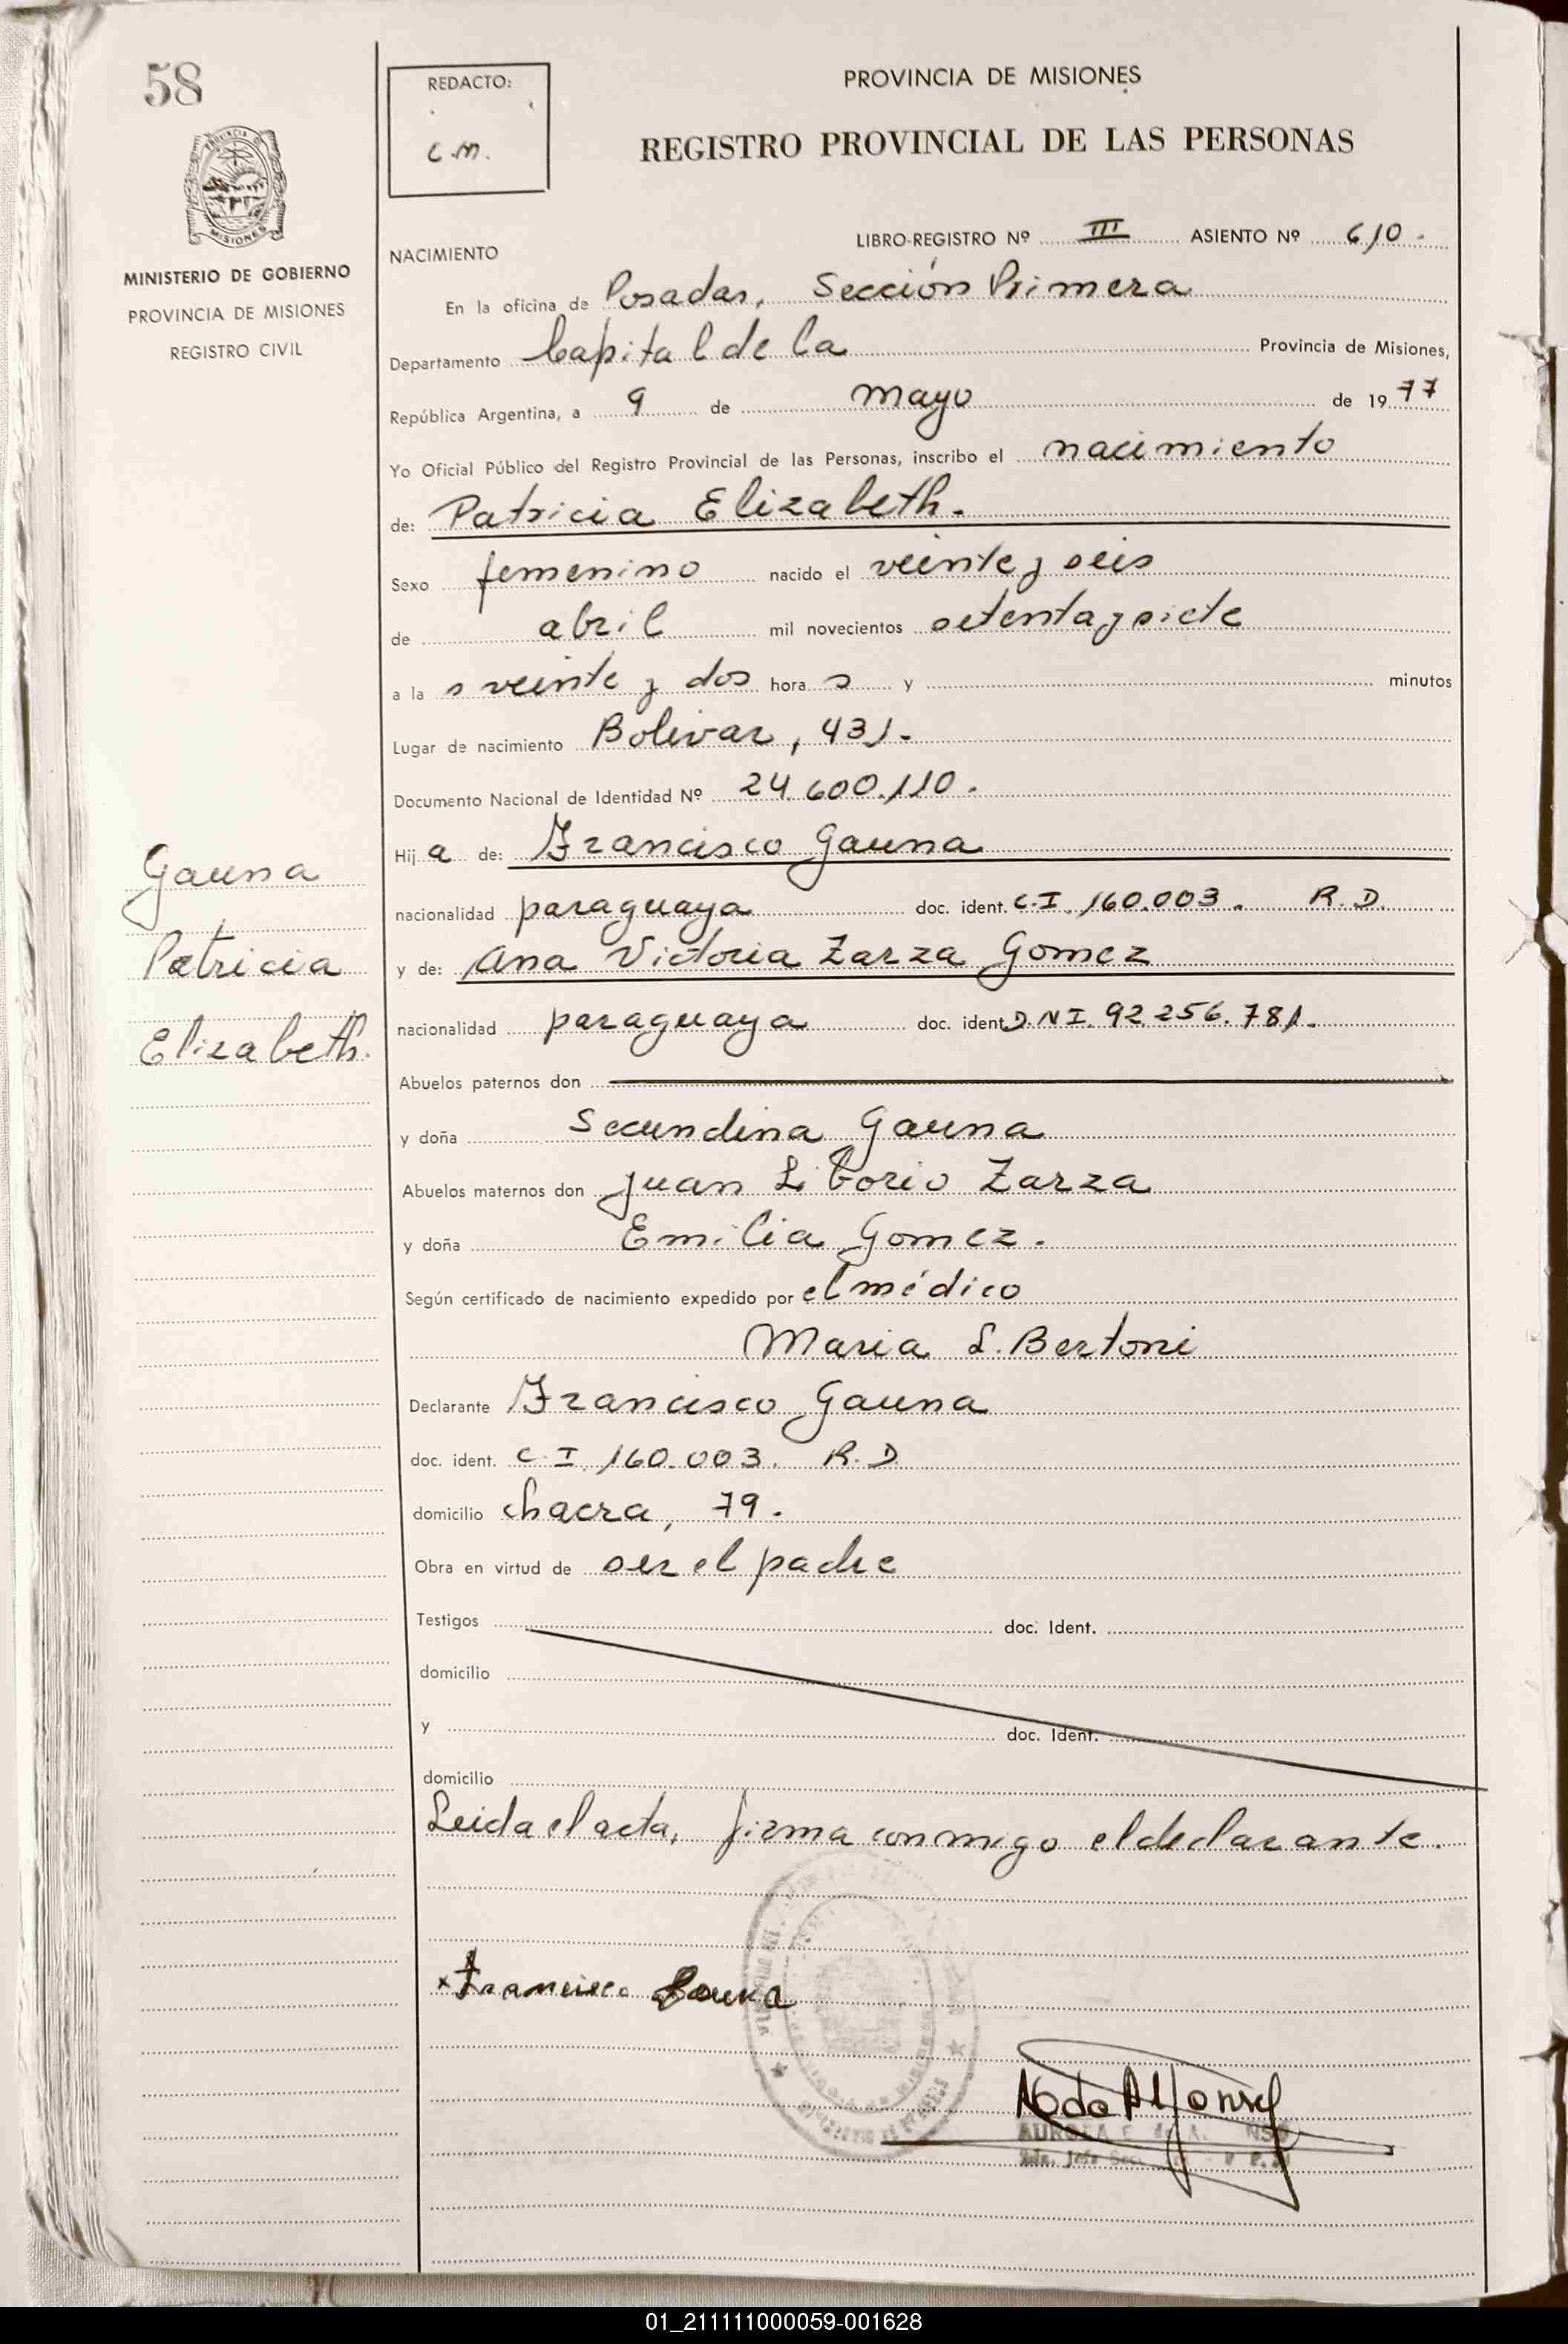 58
REDACTO:
C.M.
PROVINCIA DE MISIONES
REGISTRO PROVINCIAL DE LAS PERSONAS
MISIONES
MINISTERIO DE GOBIERNO
PROVINCIA DE MISIONES
REGISTRO CIVIL
LIBRO-REGISTRO Nº III ASIENTO Nº 610.
NACIMIENTO
En la oficina de Posadas, Sección Primera
Departamento Capital de la Provincia de Misiones,
República Argentina, a 9 de mayo de 1977
Yo Oficial Público del Registro Provincial de las Personas, inscribo el nacimiento
de: Patricia Elizabeth.
Sexo femenino nacido el veinte y seis
de abril mil novecientos setenta y siete
a la s veinte y dos hora s y minutos
Lugar de nacimiento Bolivar, 431.
Documento Nacional de Identidad Nº 24.600.110.
Hij a de: Francisco Gauna
nacionalidad paraguaya doc. ident. C.I. 160.003. R.D.
y de: Ana Victoria Zarza Gomez
nacionalidad paraguaya doc. ident. D.N.I. 92.256.781.
Gauna
Patricia
Elizabeth.
Abuelos paternos don
y doña Secundina Gauna
Abuelos maternos don Juan Liborio Zarza
y doña Emilia Gomez.
Según certificado de nacimiento expedido por el médico
Maria L. Bertoni
Declarante Francisco Gauna
doc. ident. C.I. 160.003. R.D.
domicilio chacra, 79.
Obra en virtud de ser el padre
Testigos doc. Ident.
domicilio
y doc. Ident.
domicilio
Leida el acta, firma conmigo el declarante.
x Francisco Gauna
01_211111000059-001628